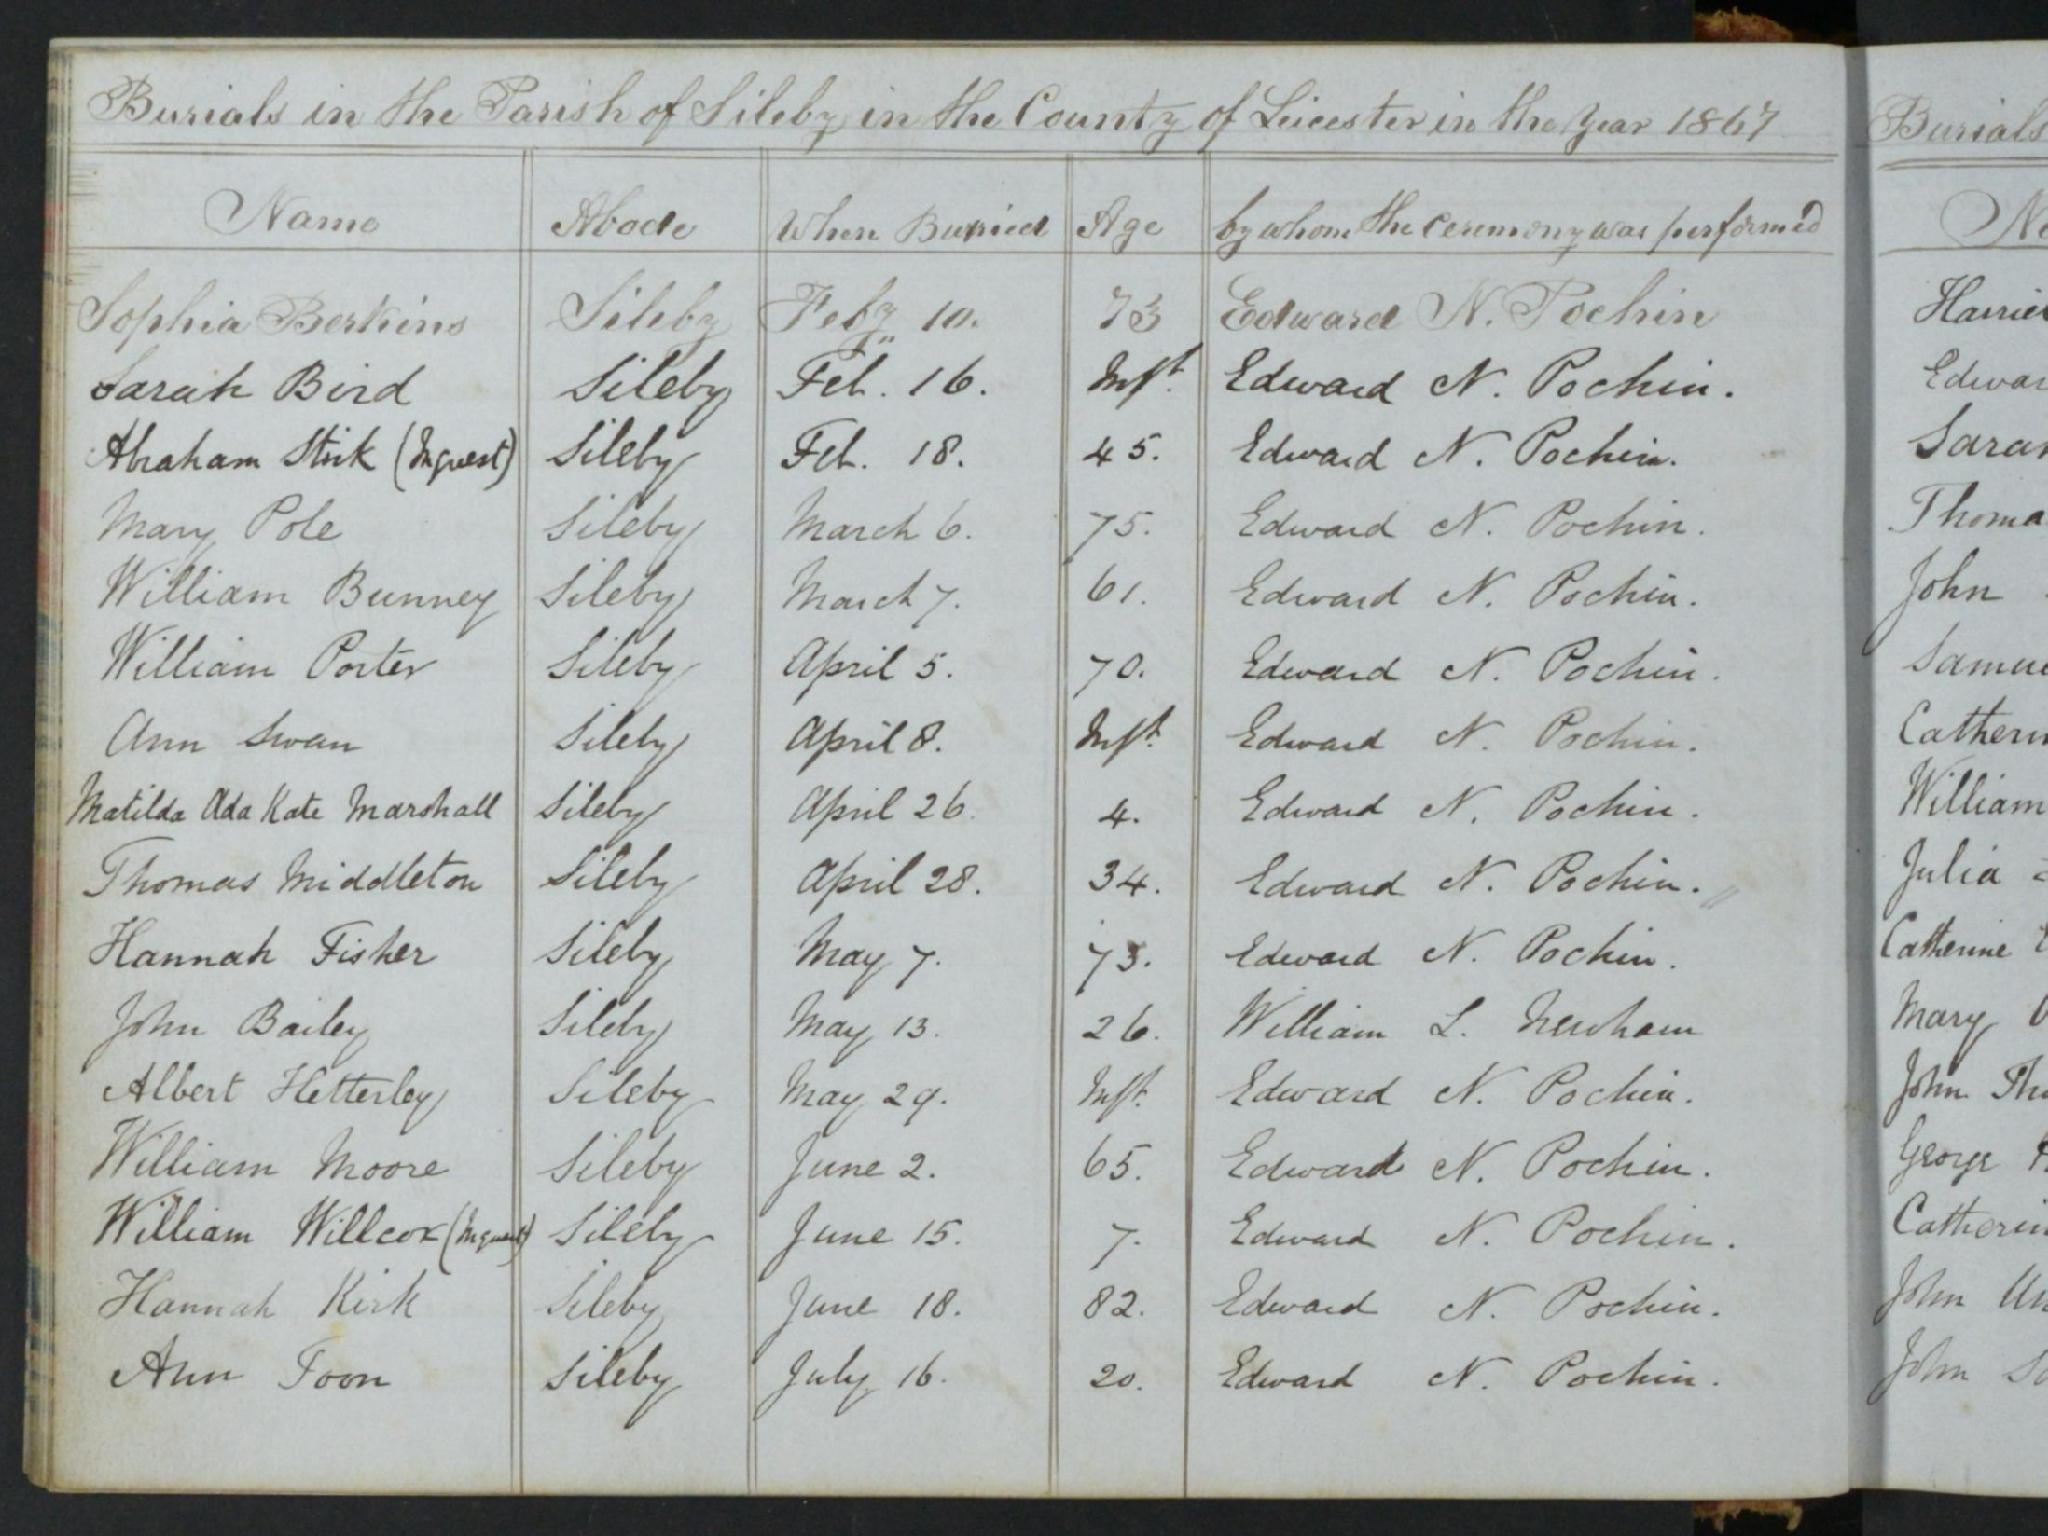 Burials in the Parish of Sileby in the County of Leicester in the Year 1867
Name Abode When Buried Age by whom the ceremony was performed
Sophia Berkins Sileby Feby 10. 73 Edward N. Pochin
Sarah Bird Sileby Feb. 16. Inft. Edward N. Pochin.
Abraham Stirk (Inquest) Sileby Feb. 18. 45. Edward N. Pochin.
Mary Pole Sileby March 6. 75. Edward N. Pochin.
William Bunney Sileby March 7. 61. Edward N. Pochin.
William Porter Sileby April 5. 70. Edward N. Pochin.
Ann Swan Sileby April 8. Inft. Edward N. Pochin.
Matilda Ada Kate Marshall Sileby April 26. 4. Edward N. Pochin.
Thomas Middleton Sileby April 28. 34. Edward N. Pochin.
Hannah Fisher Sileby May 7. 73. Edward N. Pochin.
John Bailey Sileby May 13. 26. William L. Newham
Albert Hetterley Sileby May 29. Inft. Edward N. Pochin.
William Moore Sileby June 2. 65. Edward N. Pochin.
William Willcox (Inquest) Sileby June 15. 7. Edward N. Pochin.
Hannah Kirk Sileby June 18. 82. Edward N. Pochin.
Ann Toon Sileby July 16. 20. Edward N. Pochin.
Burials
Thoma
John
William
Julia
Catherine
Mary
John
George
John
John